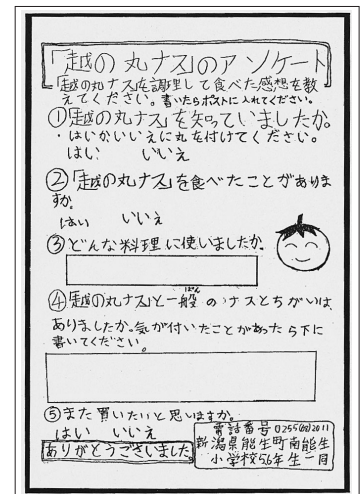 「越の丸ナス」のアンケート
「越の丸ナス」を調理して食べた感想を教
えてください。書いたらポストに入れてください。
①「越の丸ナス」を知っていましたか。
・はいかいいえに丸を付けてください。
はい いいえ
②「越の丸ナス」を食べたことがありま
すか。
はい いいえ
③どんな料理に使いましたか。
④「越の丸ナス」と一般のナスとちがいは、
ぱん
ありましたか。気が付いたことがあったら下に
書いてください。
⑤また買いたいと思いますか。
はい いいえ
ありがとうございました。
電話番号
新潟県能生町南能生
小学校5.6年生一同